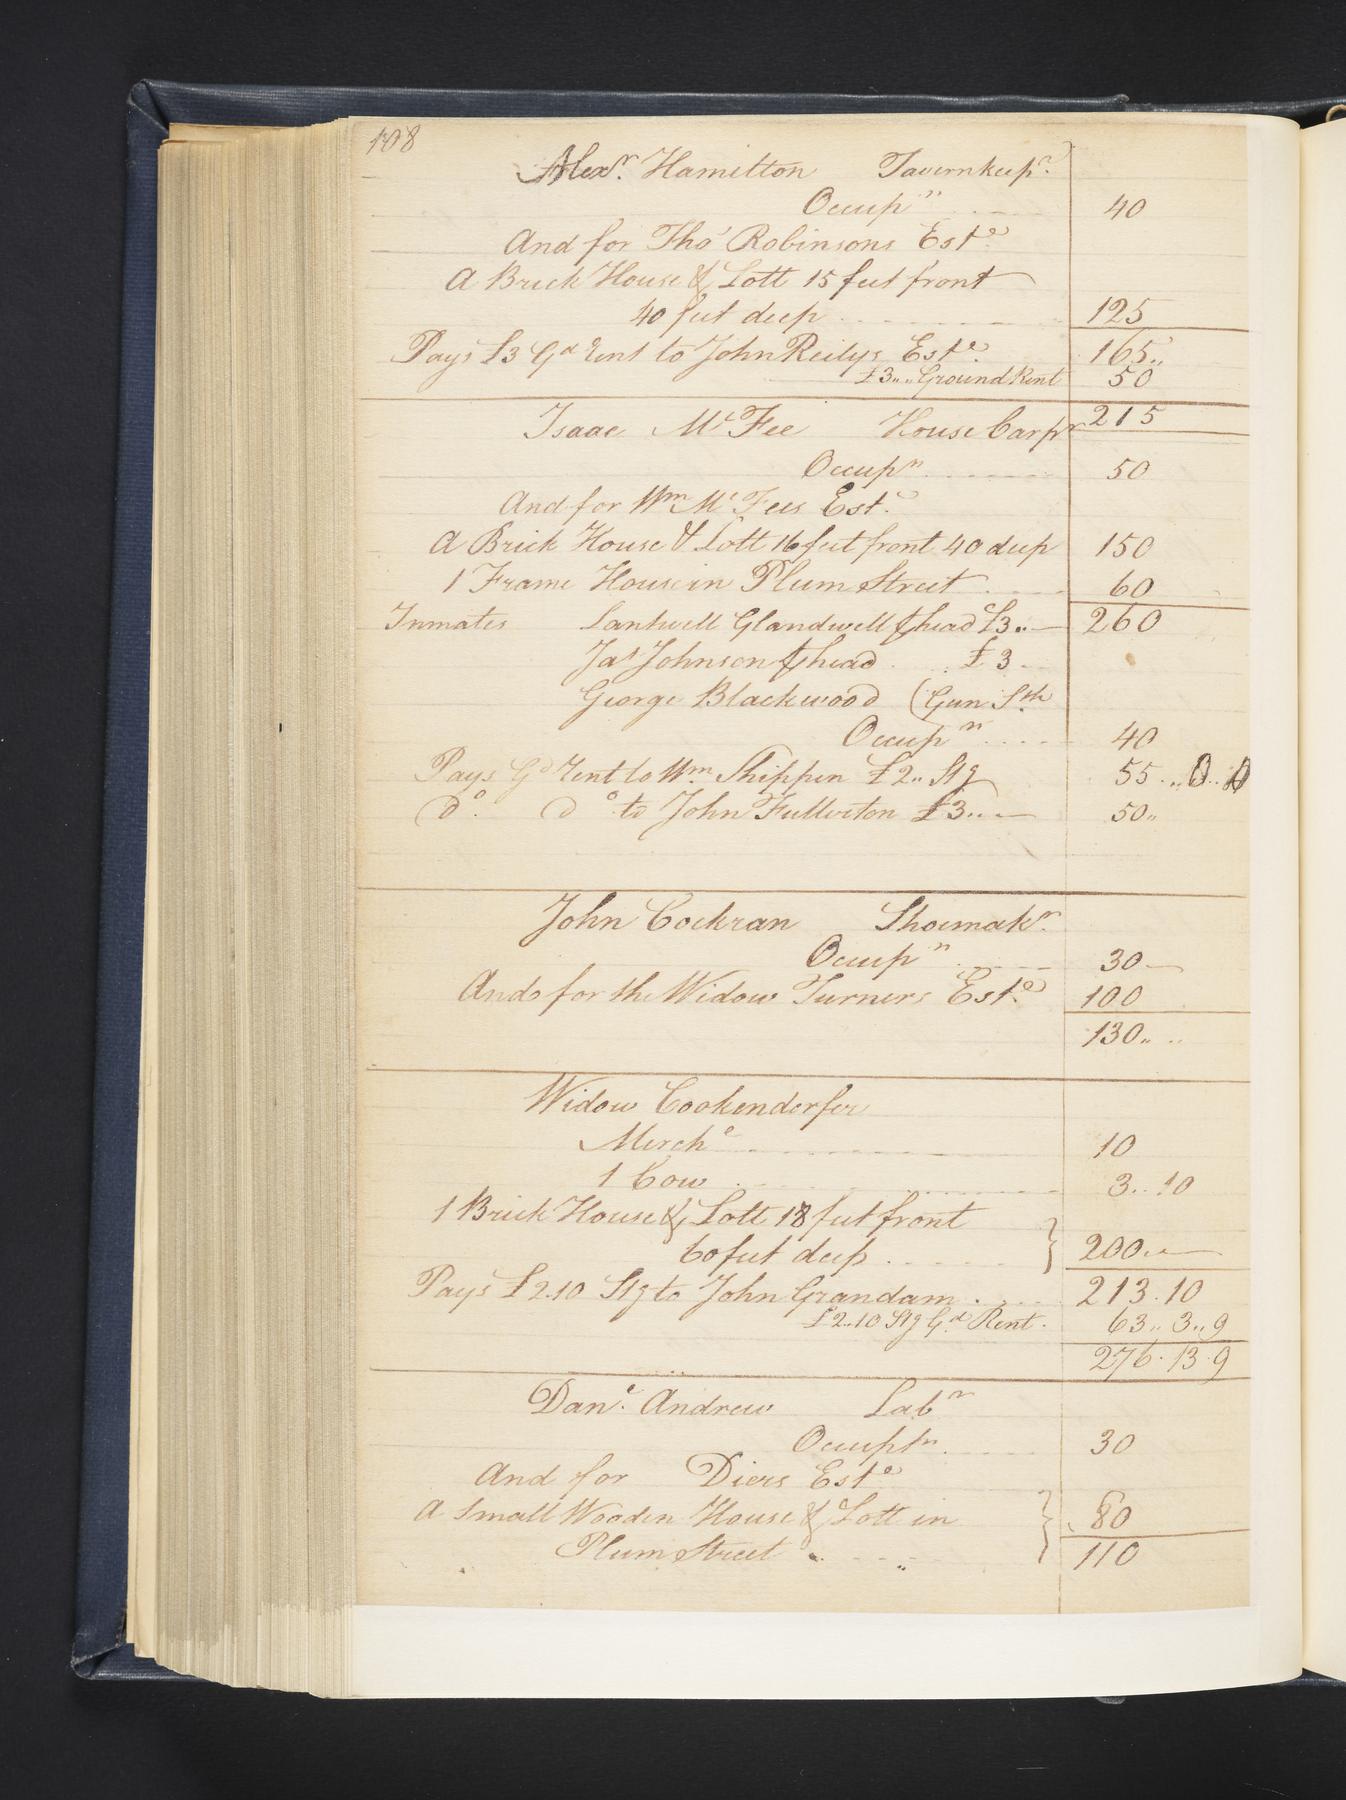 108
Alexr. Hamilton Tavernkeepr.
Occupn 40
And for Tho' Robinsons Este.
A Brick House & Lott 15 feet front
40 feet deep 125
Pays £3 Gd Rent to John Reilys Este. 165,,
£3,,,, Ground Rent 50
215
Isaac McFee House Carpr
Occupn 50
And for Wm McFees Este.
A Brick House & Lott 16 feet front 40 deep 150
1 Frame House in Plum Street 60
Inmates Glandwell ⅌ head £3,, — 260
Jas Johnson ⅌ head £3
George Blackwood (Gun Sth
Occupn 40
Pays Gd Rent to Wm Shippen £2,, Stg 55 ,, 0 ,, 0
Do. Do to John Fullerton £3,, — 50,,
John Cockran Shoemakr.
Occupn 30 —
And for the Widow Turners Este. 100
130,, ,,
Widow Cookendorfer
Merche 10
1 Cow 3,, 10
1 Brick House & Lott 18 feet front
60 feet deep } 200,, —
Pays £2.10 Stg to John Grandam 213.10
£2,,10 Stg Gd. Rent. 63,, 3,, 9
276.13.9
Dane. Andrew Labr
Occuptn. 30
And for Diers Este
A Small Wooden House & Lott in
Plum Street } 80
110